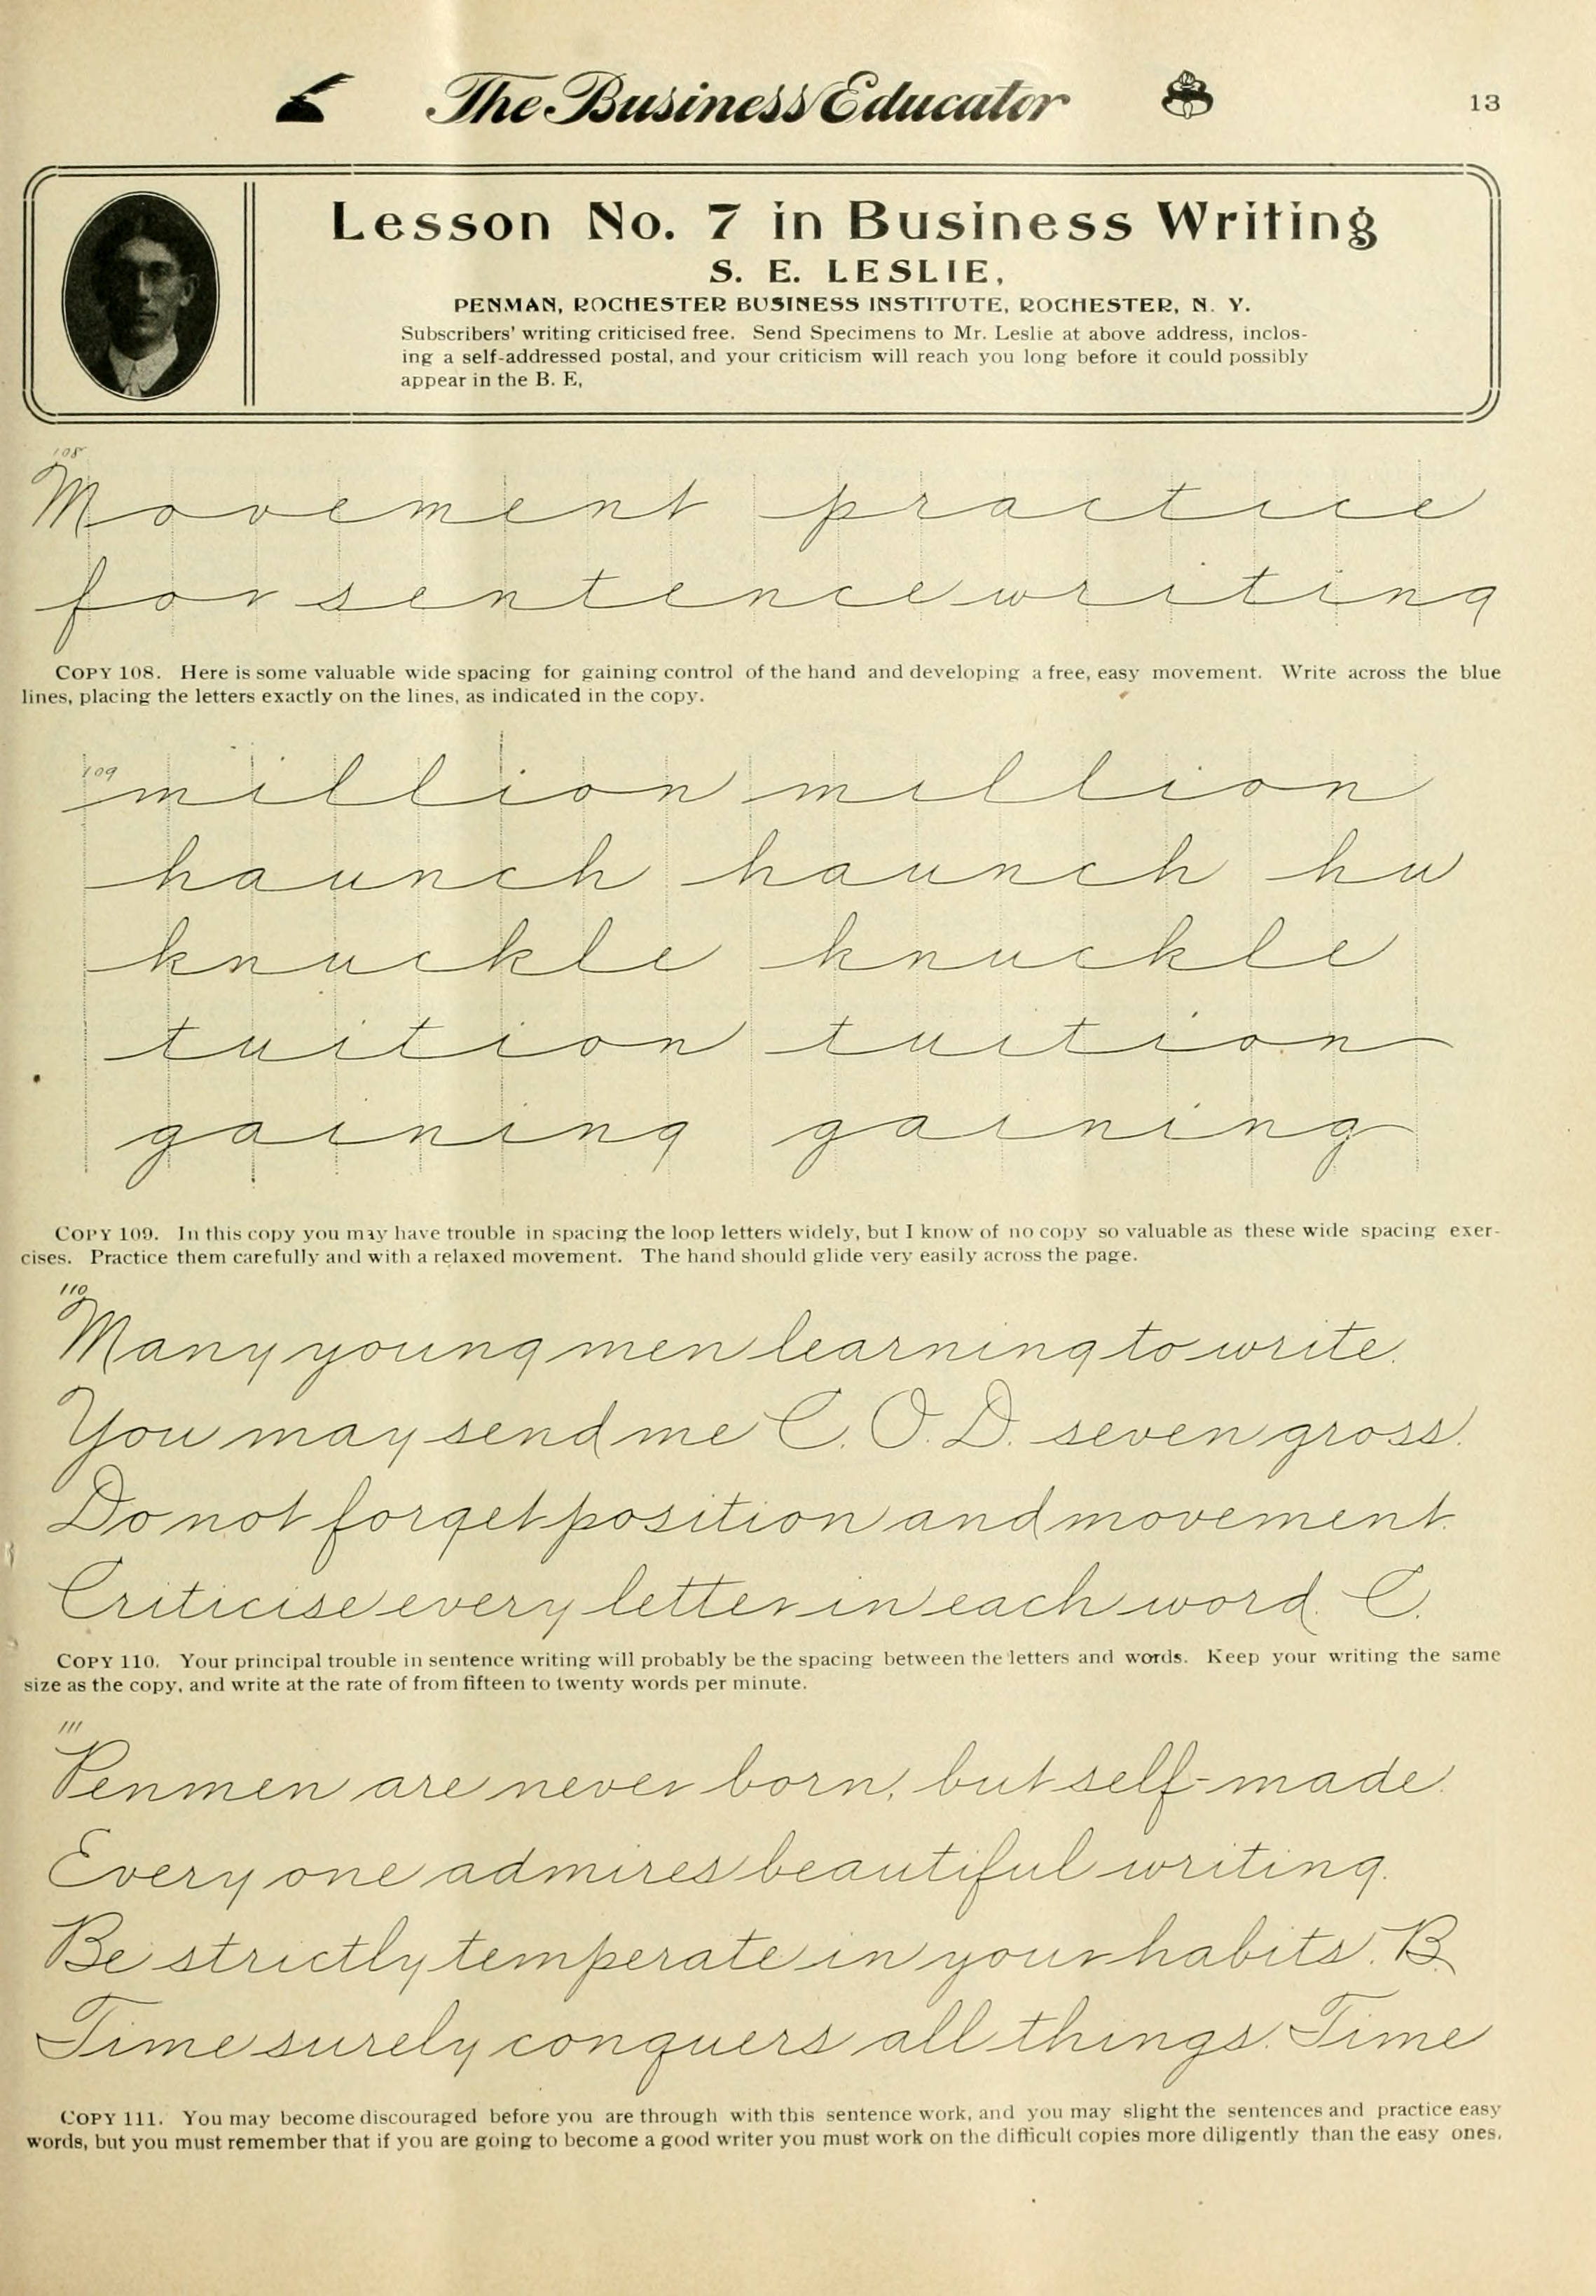 The Business Educator
13
Lesson No. 7 in Business Writing
S. E. LESLIE,
PENMAN, ROCHESTER BUSINESS INSTITUTE, ROCHESTER, N. Y.
Subscribers' writing criticised free. Send Specimens to Mr. Leslie at above address, inclos-
ing a self-addressed postal, and your criticism will reach you long before it could possibly
appear in the B. E,
108
Movement practice
for sentence writing
COPY 108. Here is some valuable wide spacing for gaining control of the hand and developing a free, easy movement. Write across the blue
lines, placing the letters exactly on the lines, as indicated in the copy.
109
million million
haunch haunch hu
knuckle knuckle
tuition tuition
gaining gaining
COPY 109. In this copy you may have trouble in spacing the loop letters widely, but I know of no copy so valuable as these wide spacing exer-
cises. Practice them carefully and with a relaxed movement. The hand should glide very easily across the page.
110
Many young men learning to write.
You may send me C. O. D. seven gross.
Do not forget position and movement.
Criticise every letter in each word. C.
COPY 110. Your principal trouble in sentence writing will probably be the spacing between the letters and words. Keep your writing the same
size as the copy, and write at the rate of from fifteen to twenty words per minute.
111
Penmen are never born, but self-made.
Every one admires beautiful writing.
Be strictly temperate in your habits. B.
Time surely conquers all things. Time
COPY 111. You may become discouraged before you are through with this sentence work, and you may slight the sentences and practice easy
words, but you must remember that if you are going to become a good writer you must work on the difficult copies more diligently than the easy ones.